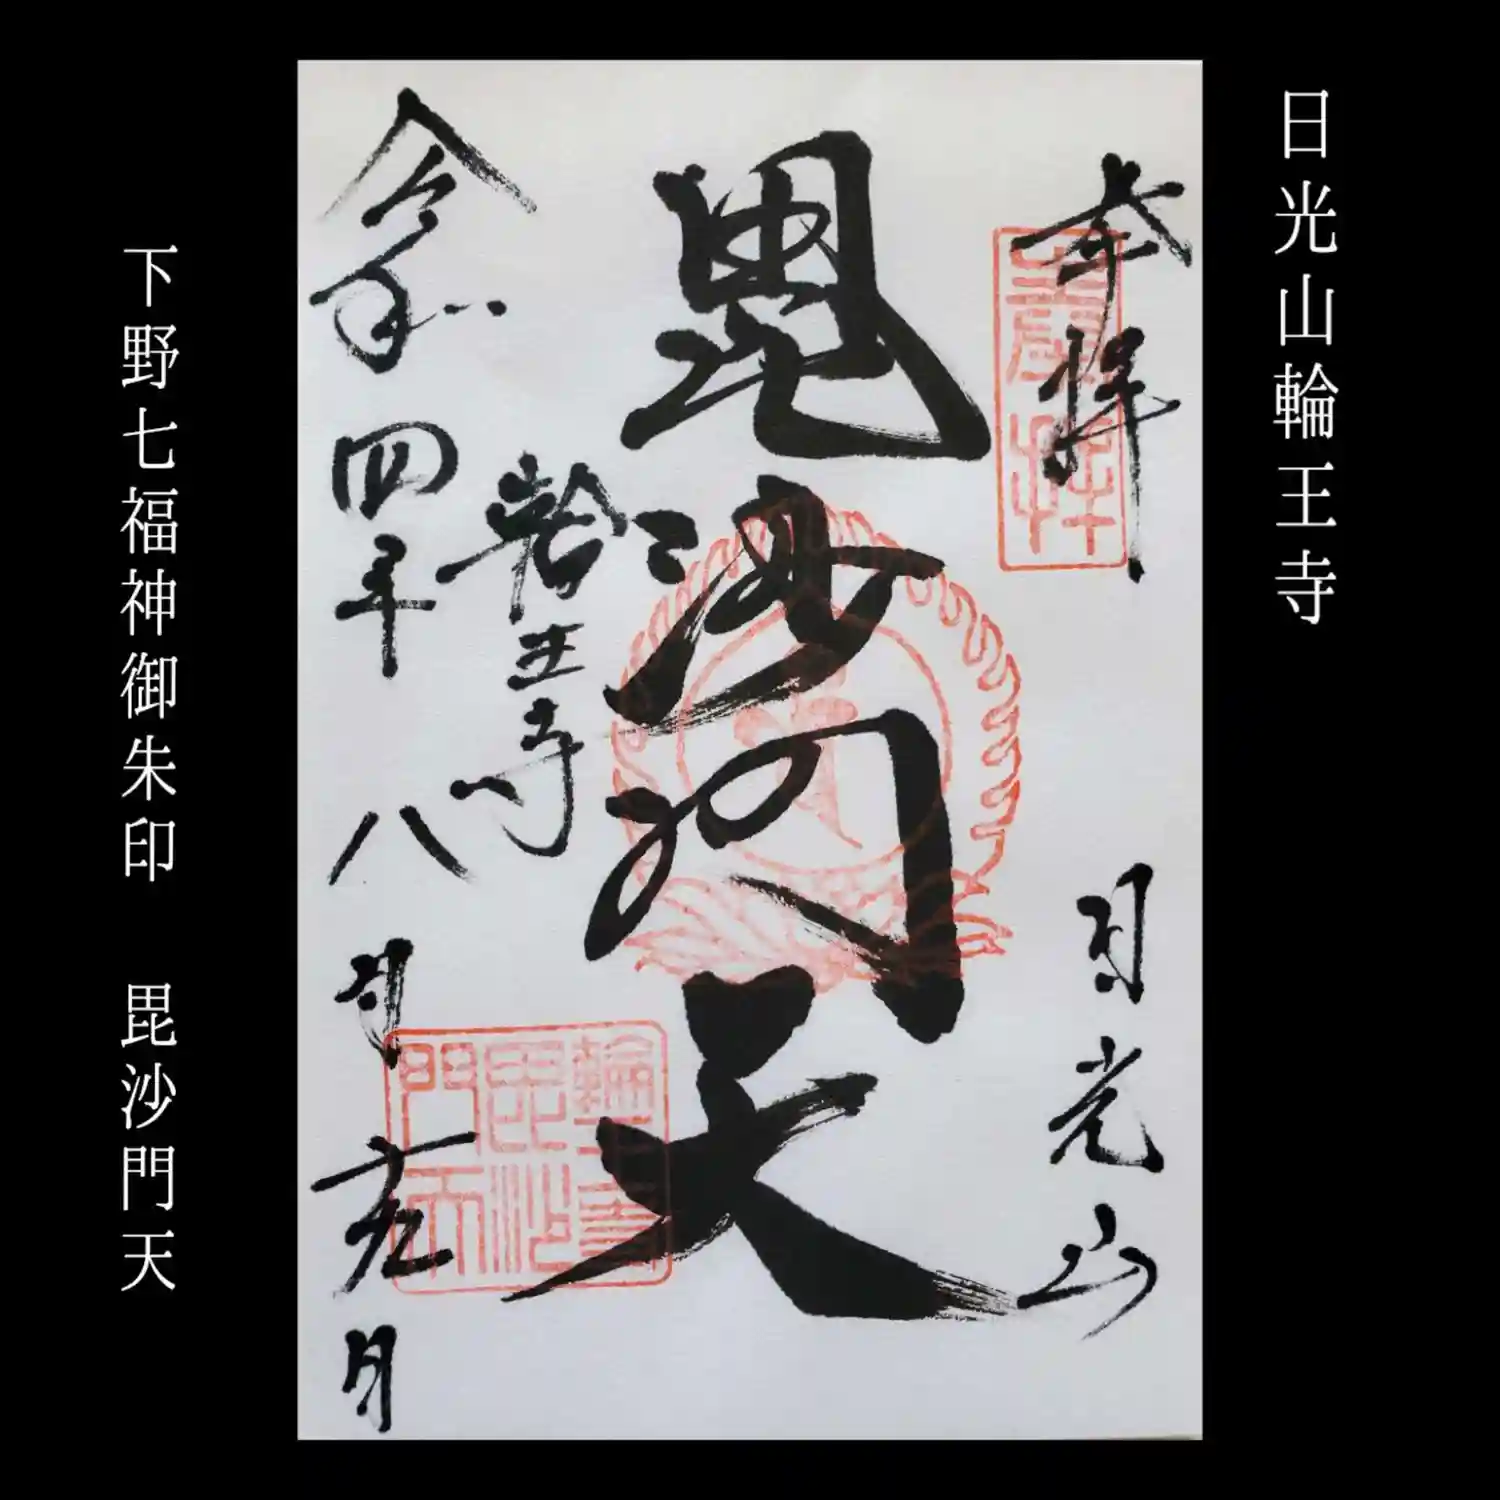 日光山輪王寺
奉拝
日光山
毘沙門天
輪王寺
令和四年八月
下野七福神御朱印　毘沙門天
奉拝
輪王寺
毘沙
門天